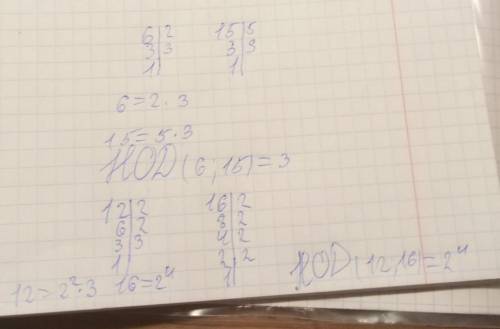 6|2 15|5
3|3 3|3
1| 1|
6=2·3
15=5·3
НОД(6;15)=3
12|2 16|2
6|2 8|2
3|3 4|2
1| 2|2
1|
12=2²·3 16=2⁴ НОД(12,16)=2⁴